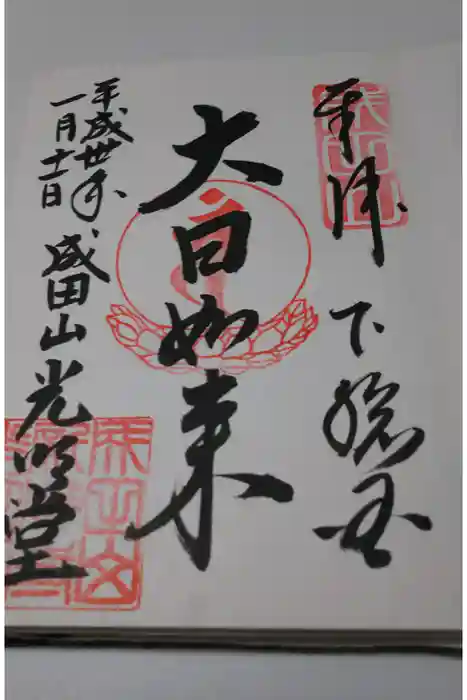 奉拝
下総国
大日如来
成田山
光明堂
平成卅年
一月十一日